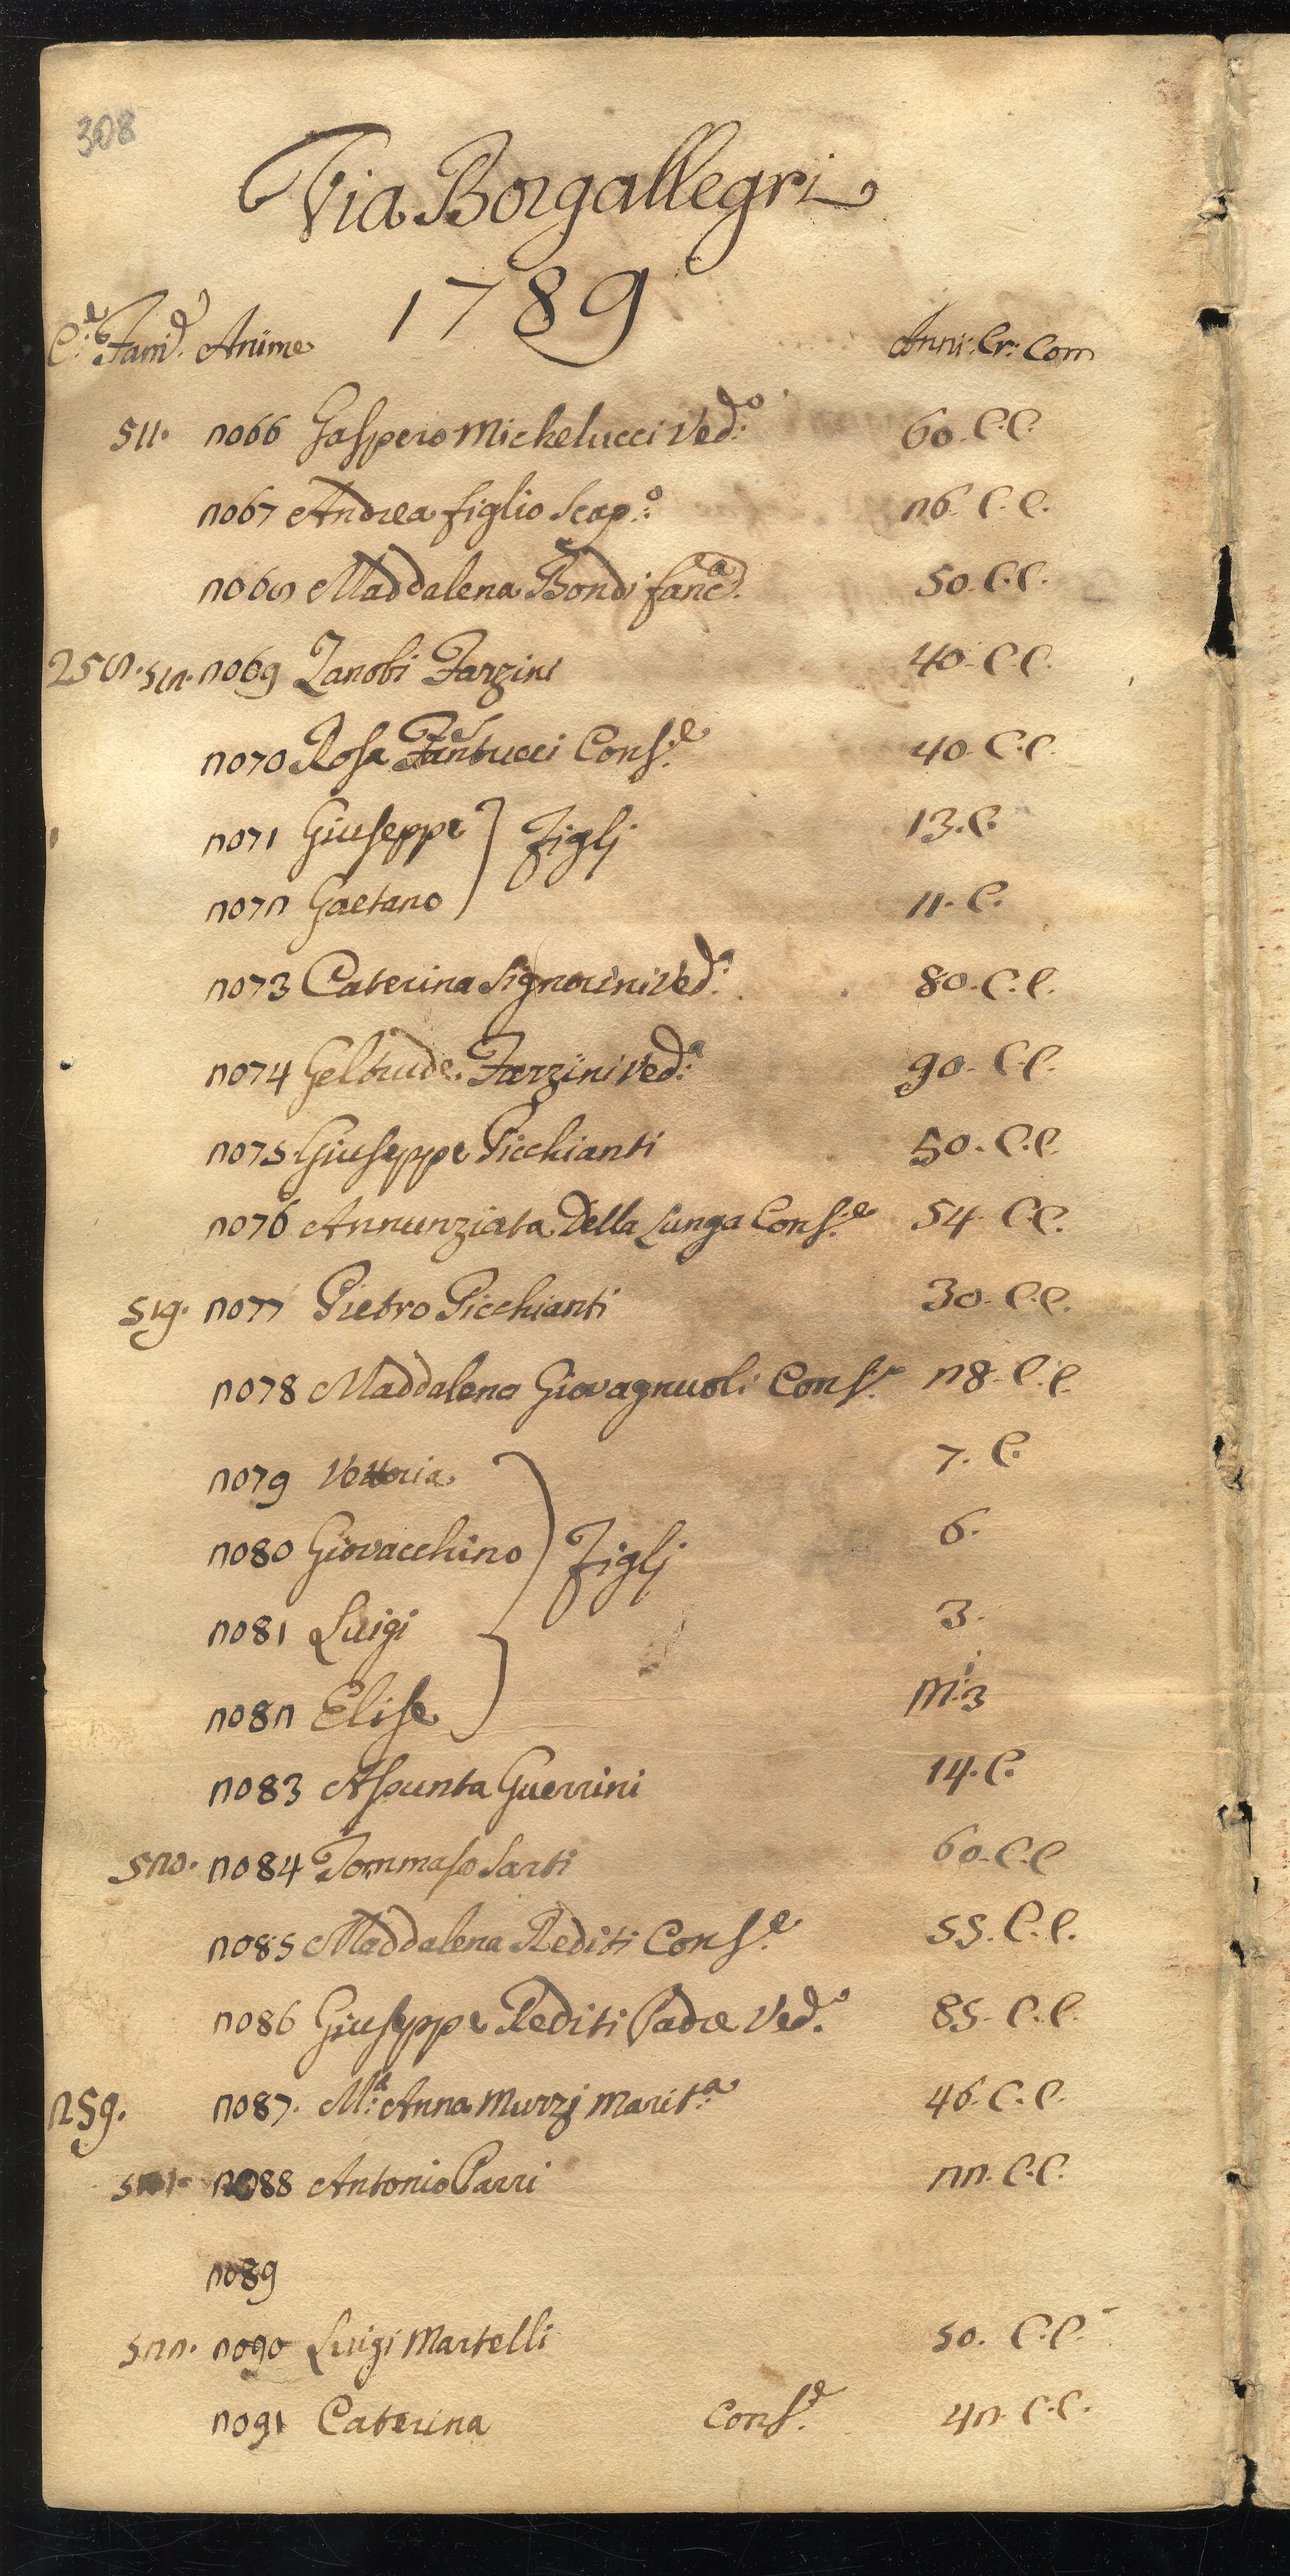 308
Via Borgallegri
1789
C:e Fam:e Anime Anni: Cr: Com
511. 2066 Gaspero Michelucci Ved:o 60. C.C.
2067 Andrea figlio Scap:o 26. C.C.
2068 Maddalena Bondi fanc:a 50. C.C.
258. 518. 2069 Zanobi Farzini 40. C.C.
2070 Rosa Fantucci Cons:e 40. C.C.
2071 Giuseppe } Figlj 13. C.
2072 Gaetano 11. C.
2073 Caterina Signorini Ved:a 80. C.C.
2074 Geltrude Farzini Ved:a 90. C.C.
2075 Giuseppe Picchianti 50. C.C.
2076 Annunziata Della Lunga Cons:e 54. C.C.
519. 2077 Pietro Picchianti 30. C.C.
2078 Maddalena Giovagnuoli Cons:e 28. C.C.
2079 Vettoria 7. C.
2080 Giovacchino } Figlj 6.
2081 Luigi 3.
2082 Elise M:i 3
2083 Assunta Guerrini 14. C.
520. 2084 Tommaso Sarti 60. C.C
2085 Maddalena Rediti Cons:e 55. C.C.
2086 Giuseppe Rediti Padre Ved:o 85. C.C.
259. 2087. M:a Anna Murzj Marit:a 46. C.C.
521. 2088 Antonio Parri 22. C.C.
2089
522. 2090 Luigi Martelli 50. C.C.
2091 Caterina Cons:e 42. C.C.